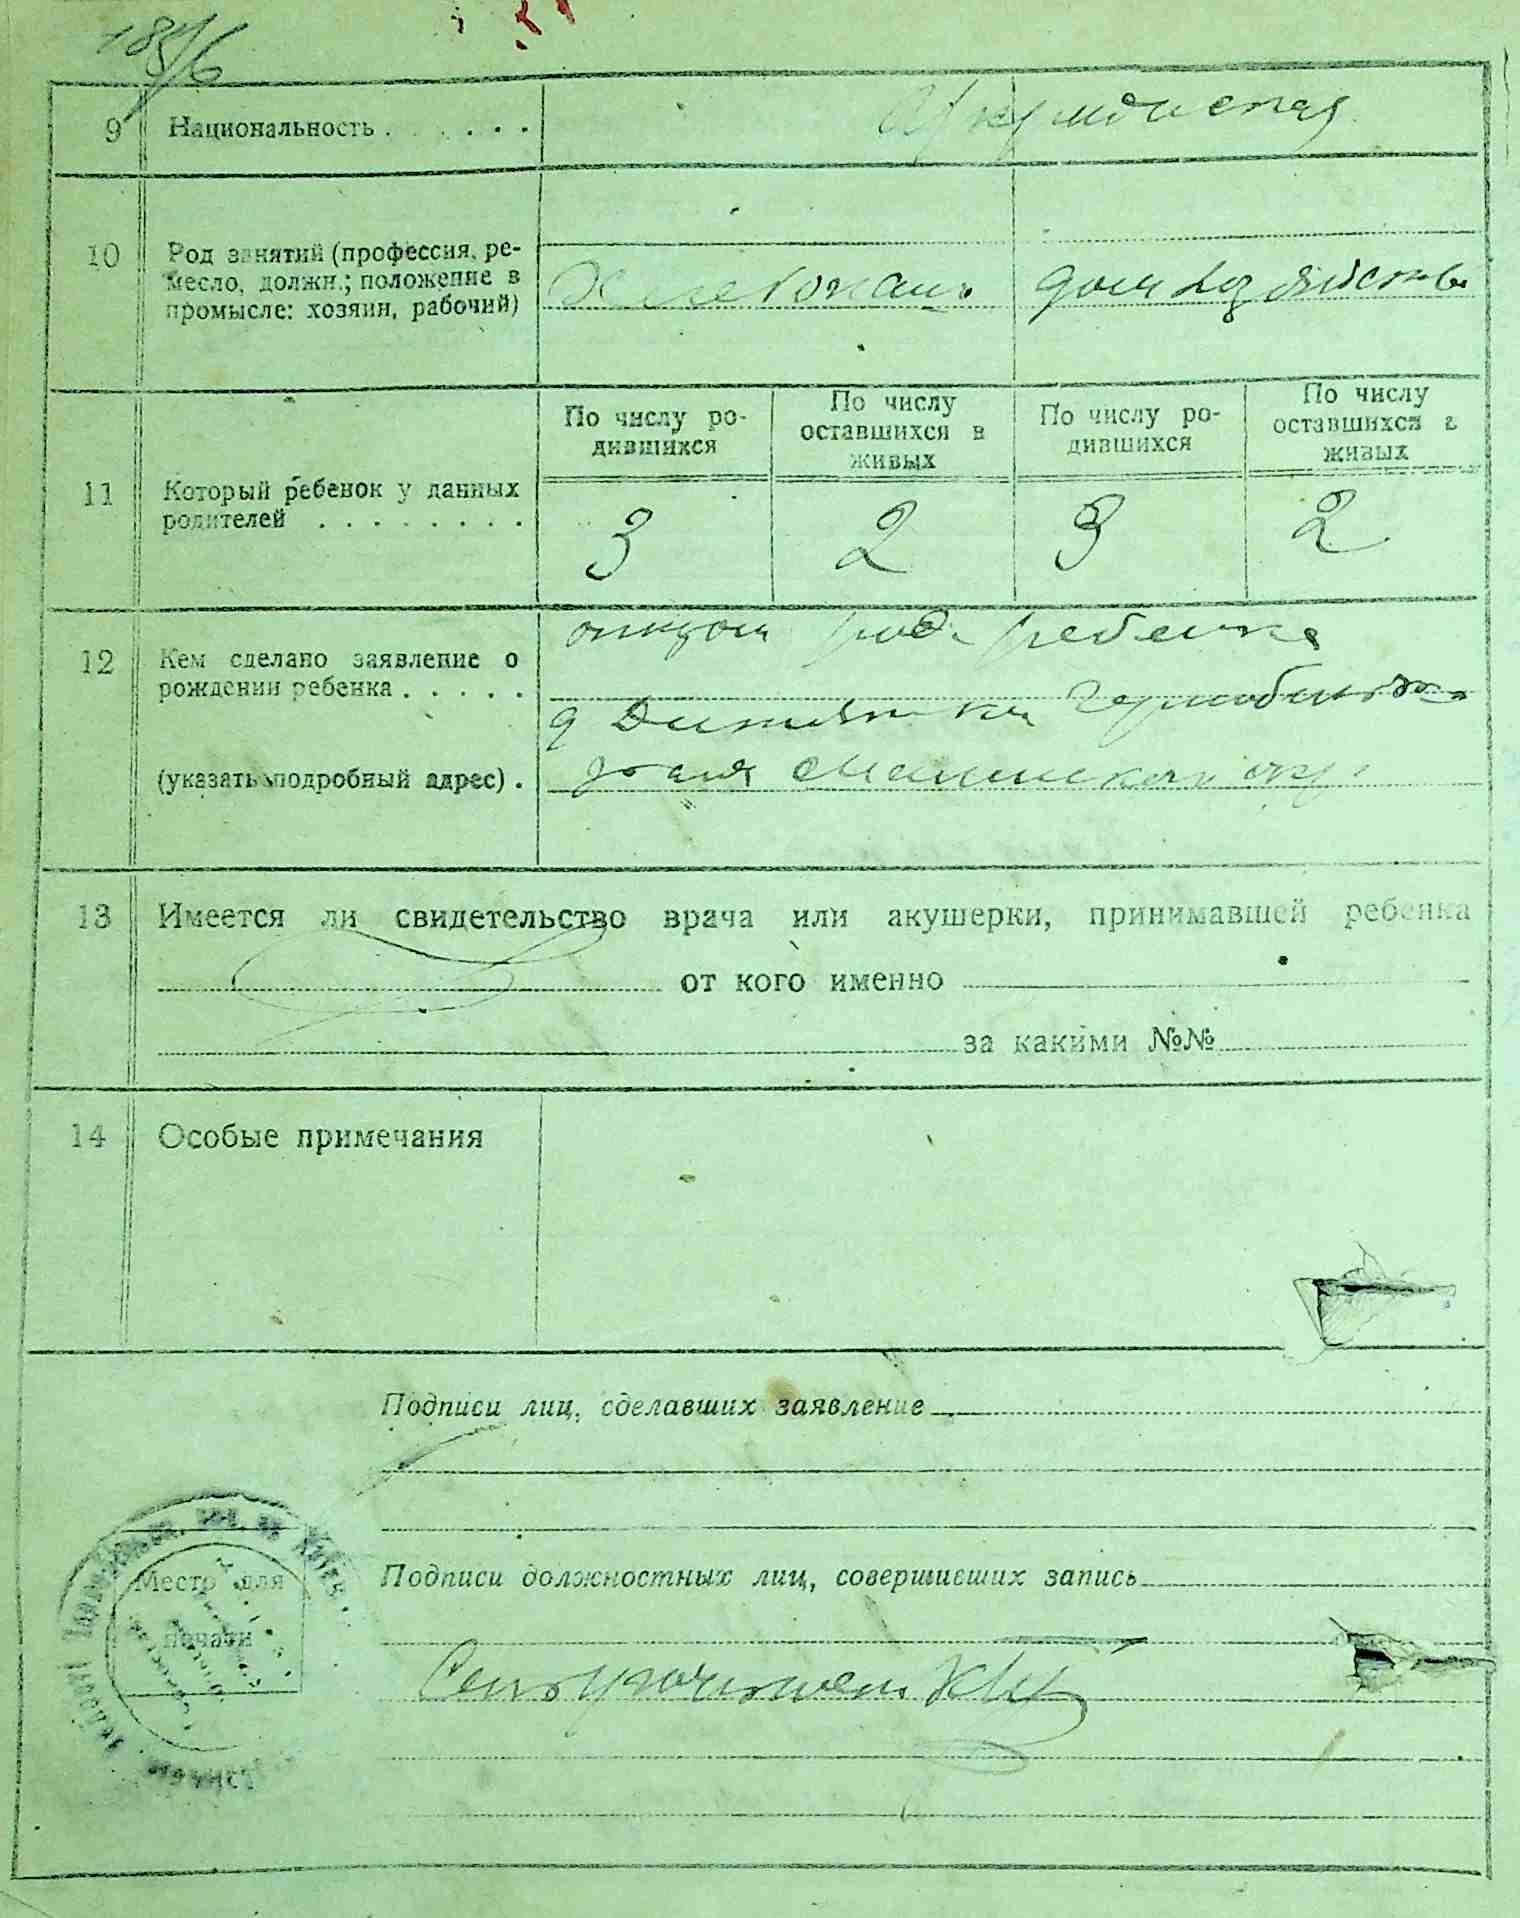 9 Национальность . . . . . . Украинская
10 Род занятий (профессия, ре-
месло, должн.; положение в
промысле: хозяин, рабочий)
Хлебопашь домхозяйство
По числу ро-
дившихся
По числу
оставшихся в
живых
По числу ро-
дившихся
По числу
оставшихся в
живых
11 Который ребенок у данных
родителей . . . . . . . .
3 2 3 2
12 Кем сделано заявление о
рождении ребенка . . . . .
(указать подробный адрес) .
отцом ребенка
д
13 Имеется ли свидетельство врача или акушерки, принимавшей ребенка
от кого именно
за какими №№
14 Особые примечания
Подписи лиц, сделавших заявление
Место для
печати
Подписи должностных лиц, совершивших запись